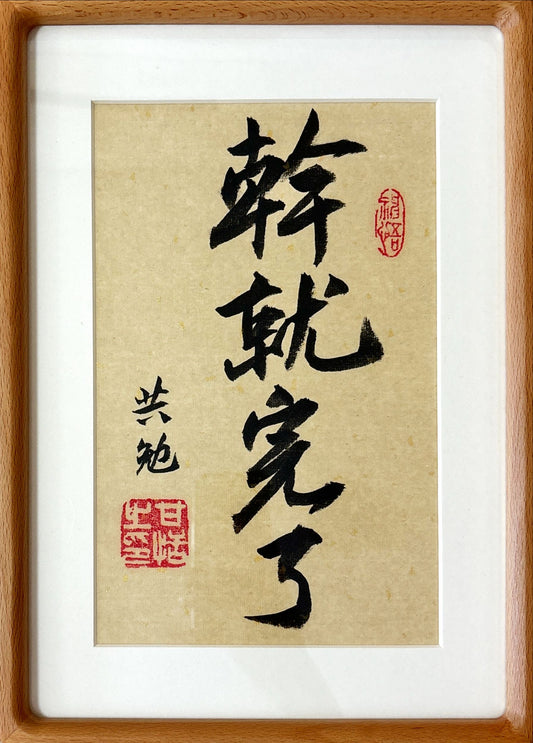 幹就完了
共勉